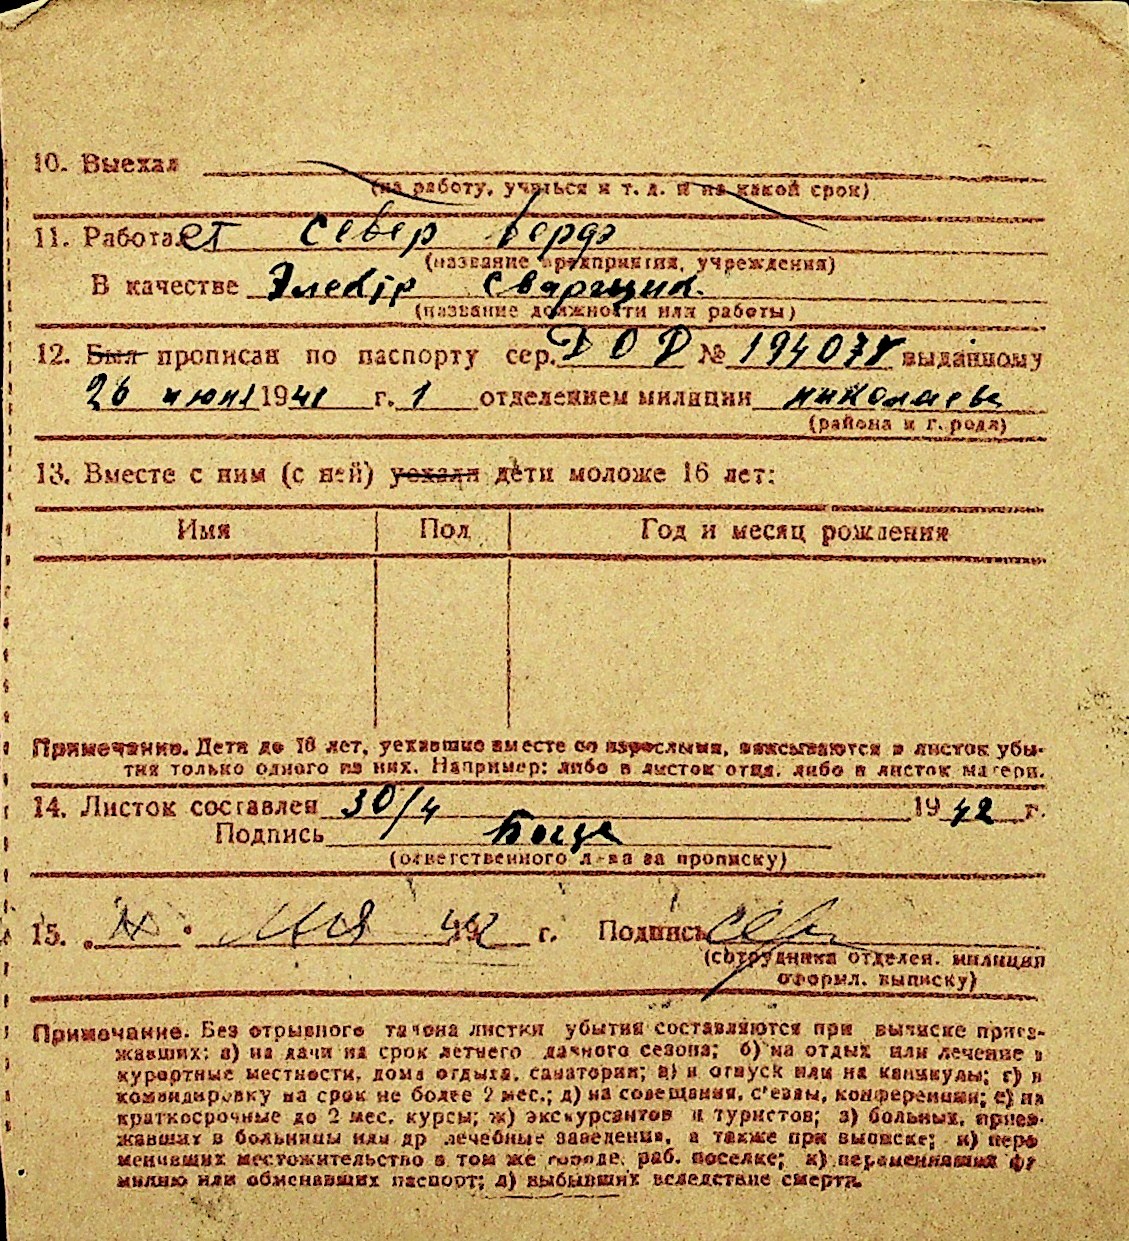 10. Выехал
(на работу, учиться и т. д. и на какой срок)
11. Работает Север верфь
(название предприятия, учреждения)
В качестве Электр Сварщик
(название должности или работы)
12. Был прописан по паспорту сер. № выданному
26 июня 1941 г. 1 отделением милиции николаева
(района и города)
13. Вместе с ним (с ней) уехали дети моложе 16 лет:
Имя Пол Год и месяц рождения
Примечание. Дети до 16 лет, уехавшие вместе со взрослыми, вписываются в листок убы-
тия только одного из них. Например: либо в листок отца, либо в листок матери.
14. Листок составлен 30/4 1942 г.
Подпись
(ответственного л-ца за прописку)
15. " " мая 1942 г. Подпись
(сотрудника отделен. милиции
оформл. выписку)
Примечание. Без отрывного талона листки убытия составляются при выписке приез-
жавших: а) на дачи на срок летнего дачного сезона; б) на отдых или лечение в
курортные местности, дома отдыха, санатории; в) в отпуск или на каникулы; г) в
командировку на срок не более 2 мес.; д) на совещания, с'езды, конференции; е) на
краткосрочные до 2 мес. курсы; ж) экскурсантов и туристов; з) больных, приез-
жавших в больницы или др лечебные заведения, а также при выписке; и) пере
менивших местожительство в том же городе, раб. поселке; к) переменивших фа
милию или обменявших паспорт; л) выбывших вследствие смерти.